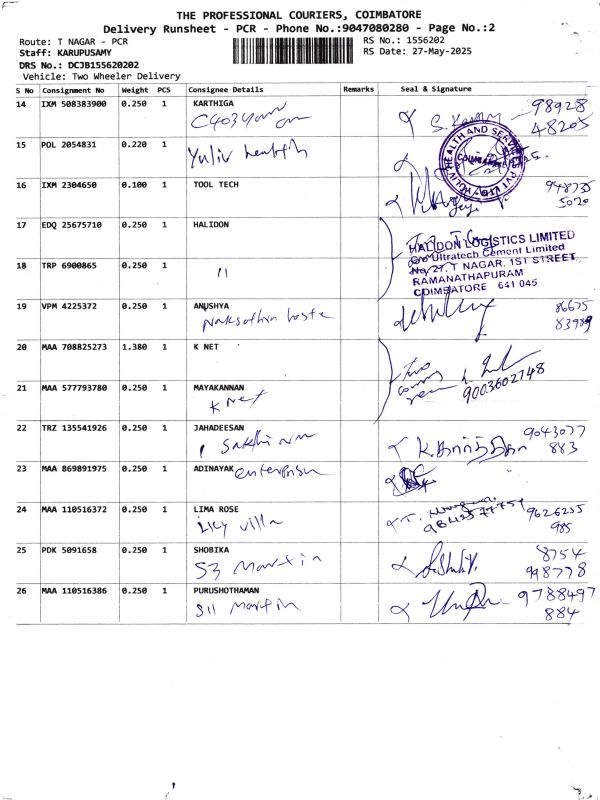 THE PROFESSIONAL COURIERS, COIMBATORE
Delivery Runsheet - PCR - Phone No.:9047080280 - Page No.:2
Route: T NAGAR - PCR
RS No.: 1556202
Staff: KARUPUSAMY
RS Date: 27-May-2025
DRS No.: DCJB155620202
Vehicle: Two Wheeler Delivery
S No Consignment No Weight PCS Consignee Details Remarks Seal & Signature
14 IXM 508383900 0.250 1 KARTHIGA
98928
48205
15 POL 2054831 0.220 1
HEALTH AND SERVICES PVT LTD
COIMBATORE
16 IXM 2304650 0.100 1 TOOL TECH
948735
5020
17 EDQ 25675710 0.250 1 HALIDON
HALIDON LOGISTICS LIMITED
C/o Ultratech Cement Limited
No.27, T NAGAR, 1ST STREET,
RAMANATHAPURAM
COIMBATORE 641 045
18 TRP 6900865 0.250 1
11
19 VPM 4225372 0.250 1 ANUSHYA
86675
83989
20 MAA 708825273 1.380 1 K NET
9003602748
21 MAA 577793780 0.250 1 MAYAKANNAN
K Net
22 TRZ 135541926 0.250 1 JAHADEESAN
9043077
883
23 MAA 869891975 0.250 1 ADINAYAK enterprises
24 MAA 110516372 0.250 1 LIMA ROSE
Licy villa
9626255
985
25 PDK 5091658 0.250 1 SHOBIKA
S3 Martin
8754
998778
26 MAA 110516386 0.250 1 PURUSHOTHAMAN
S11 Martin
9788497
884